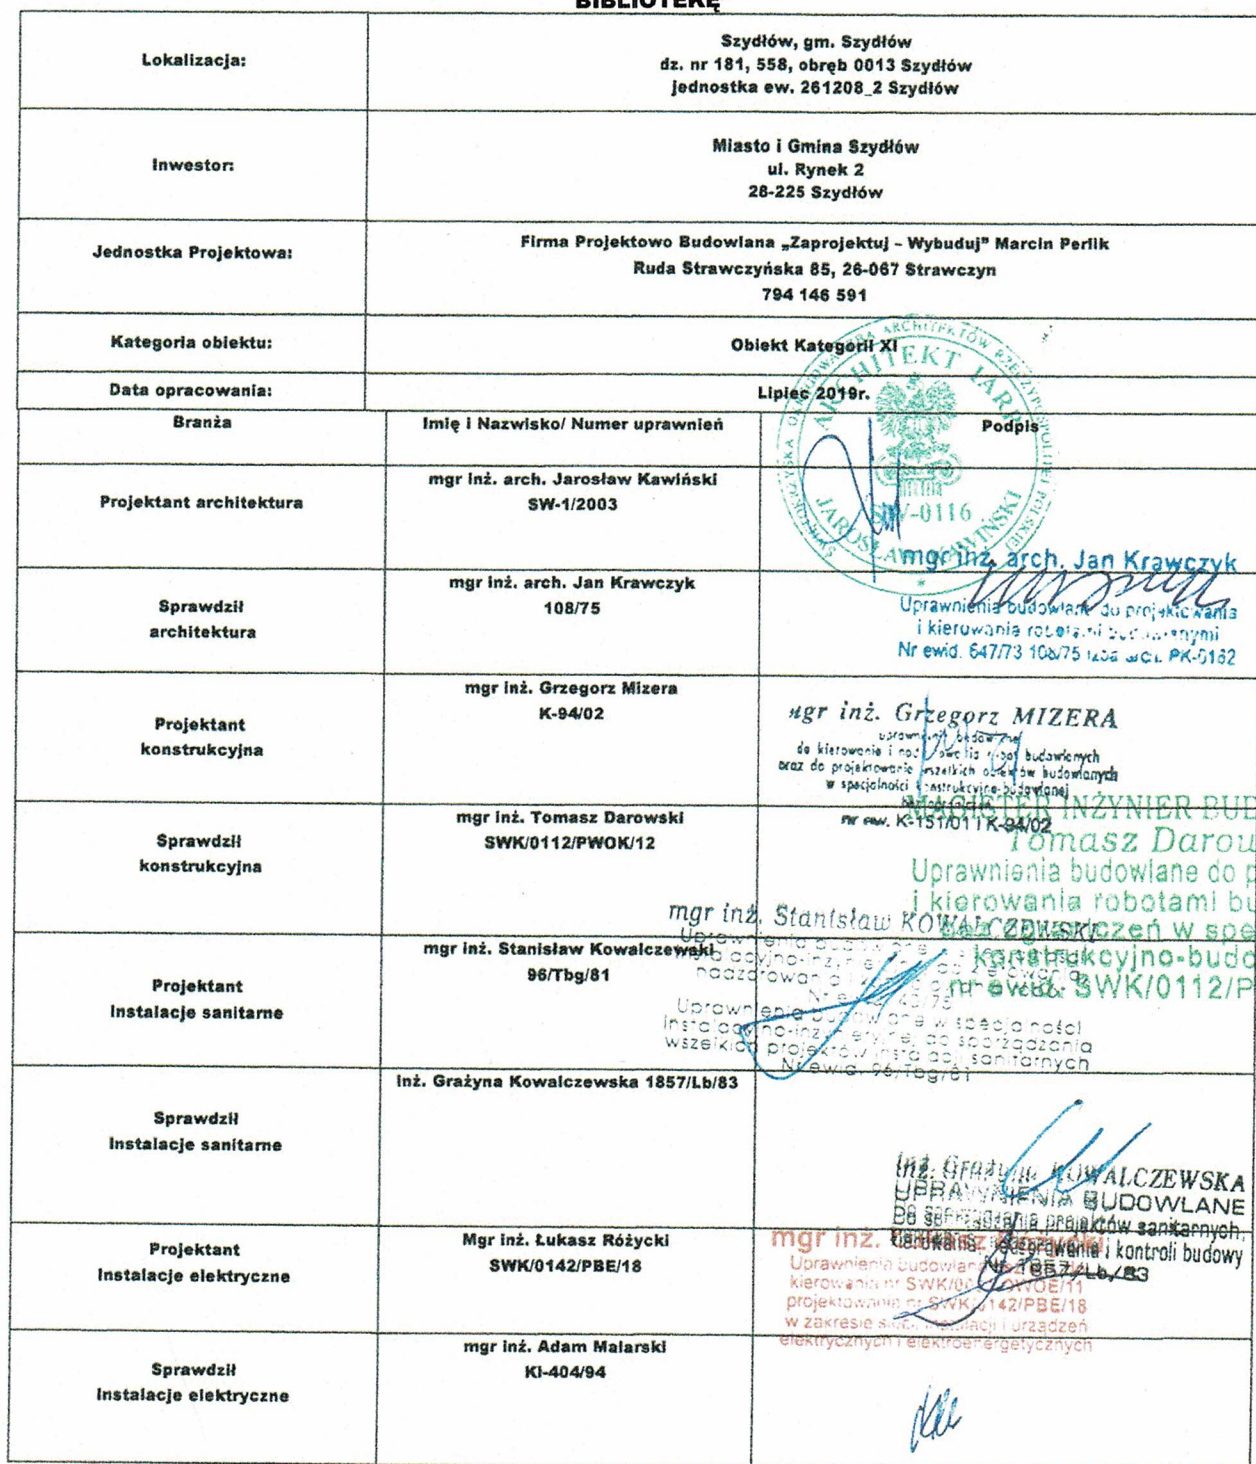 BIBLIOTEKĘ
Lokalizacja:
Szydłów, gm. Szydłów
dz. nr 181, 558, obręb 0013 Szydłów
jednostka ew. 261208_2 Szydłów
Inwestor:
Miasto i Gmina Szydłów
ul. Rynek 2
28-225 Szydłów
Jednostka Projektowa:
Firma Projektowo Budowlana „Zaprojektuj – Wybuduj" Marcin Perlik
Ruda Strawczyńska 85, 26-067 Strawczyn
794 146 591
Kategoria obiektu:
Obiekt Kategorii XI
Data opracowania:
Lipiec 2019r.
Branża
Imię i Nazwisko/ Numer uprawnień
Podpis
ARCHITEKT IARP
JAROSŁAW KAWIŃSKI
SW-0116
Projektant architektura
mgr inż. arch. Jarosław Kawiński
SW-1/2003
Sprawdził
architektura
mgr inż. arch. Jan Krawczyk
108/75
mgr inż. arch. Jan Krawczyk
Uprawnienia budowlane do projektowania
i kierowania robotami budowlanymi
Nr ewid. 647/73 108/75 PK-0162
Projektant
konstrukcyjna
mgr inż. Grzegorz Mizera
K-94/02
mgr inż. Grzegorz MIZERA
do kierowania i robót budowlanych
oraz do projektowania wszelkich obiektów budowlanych
w specjalności konstrukcyjno-budowlanej
nr ew. K-151/01 i K-94/02
Sprawdził
konstrukcyjna
mgr inż. Tomasz Darowski
SWK/0112/PWOK/12
MAGISTER INŻYNIER BUD
Tomasz Darow
Uprawnienia budowlane do p
i kierowania robotami bu
bez ograniczeń w spe
konstrukcyjno-budo
nr ewid. SWK/0112/P
Projektant
Instalacje sanitarne
mgr inż. Stanisław Kowalczewski
96/Tbg/81
mgr inż. Stanisław KOWALCZEWSKI
Uprawnienia budowlane w specjalności
instalacyjno-inżynieryjnej do sporządzania
wszelkich projektów instalacji sanitarnych
Nr ewid. 96/Tbg/81
Sprawdził
Instalacje sanitarne
inż. Grażyna Kowalczewska 1857/Lb/83
inż. Grażyna KOWALCZEWSKA
UPRAWNIENIA BUDOWLANE
projektów sanitarnych,
i kontroli budowy
Nr 1857/Lb/83
Projektant
Instalacje elektryczne
Mgr inż. Łukasz Różycki
SWK/0142/PBE/18
mgr inż. Łukasz Różycki
Uprawnienia budowlane
kierowania nr SWK/00 OWOE/11
projektowania nr SWK/0142/PBE/18
w zakresie sieci, instalacji i urządzeń
elektrycznych i elektroenergetycznych
Sprawdził
Instalacje elektryczne
mgr inż. Adam Malarski
KI-404/94